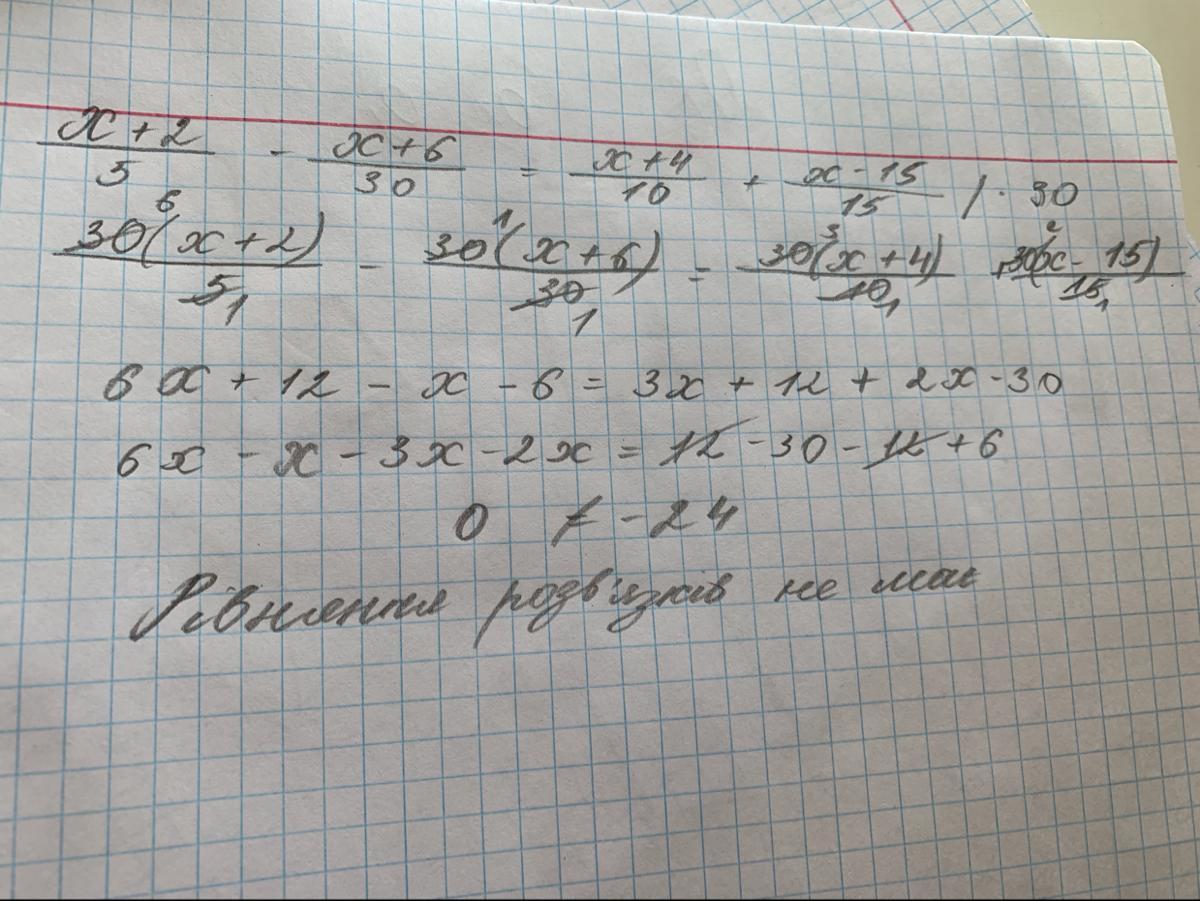 x+2/5 - x+6/30 = x+4/10 + x-15/15 /· 30
30⁶(x+2)/5₁ - 30¹(x+6)/30₁ = 30³(x+4)/10₁ + 30²(x-15)/15₁
6x + 12 - x - 6 = 3x + 12 + 2x - 30
6x - x - 3x - 2x = 12 - 30 - 12 + 6
0 ≠ -24
Рівняння розв'язків не має